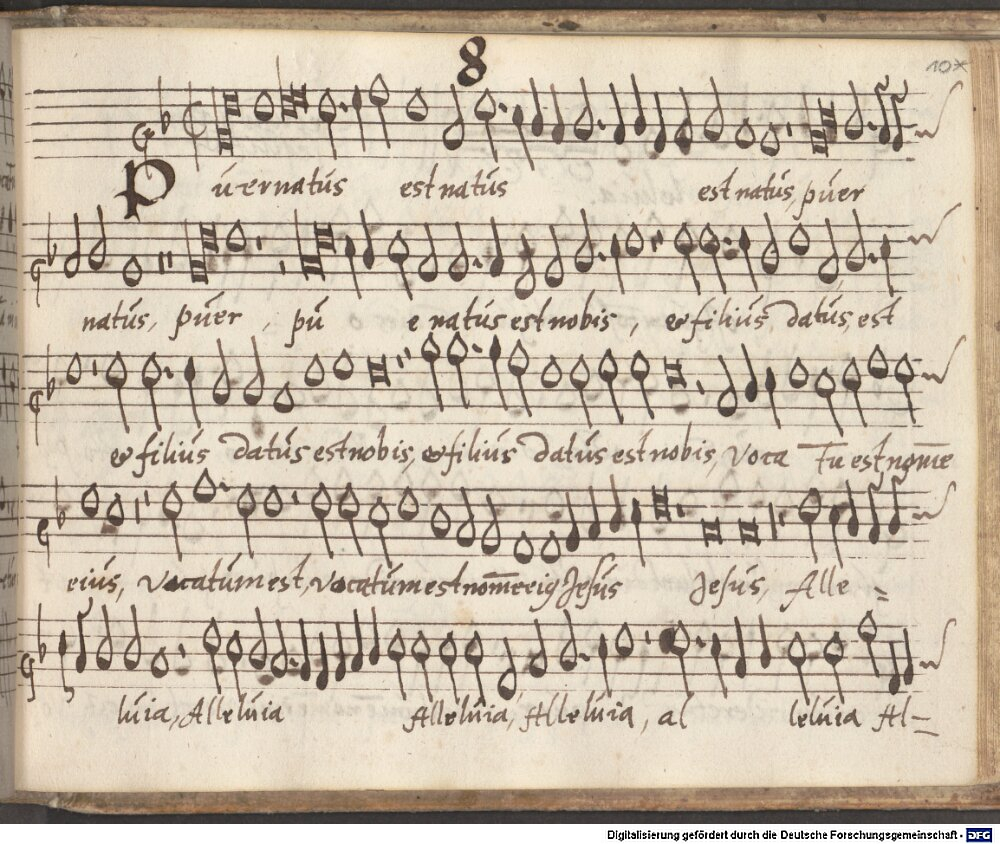 8
10*
Puer natus est natus est natus, puer
natus, puer, pu e natus est nobis, & filius datus est
& filius datus est nobis, & filius datus est nobis, Voca Tu est nom̄e
eius, Vocatum est, Vocatum est nom̄e ei9 Jesus Jesus, Alle =
luia, Alleluia Alleluia, Alleluia, al leluia Al=
Digitalisierung gefördert durch die Deutsche Forschungsgemeinschaft - DFG